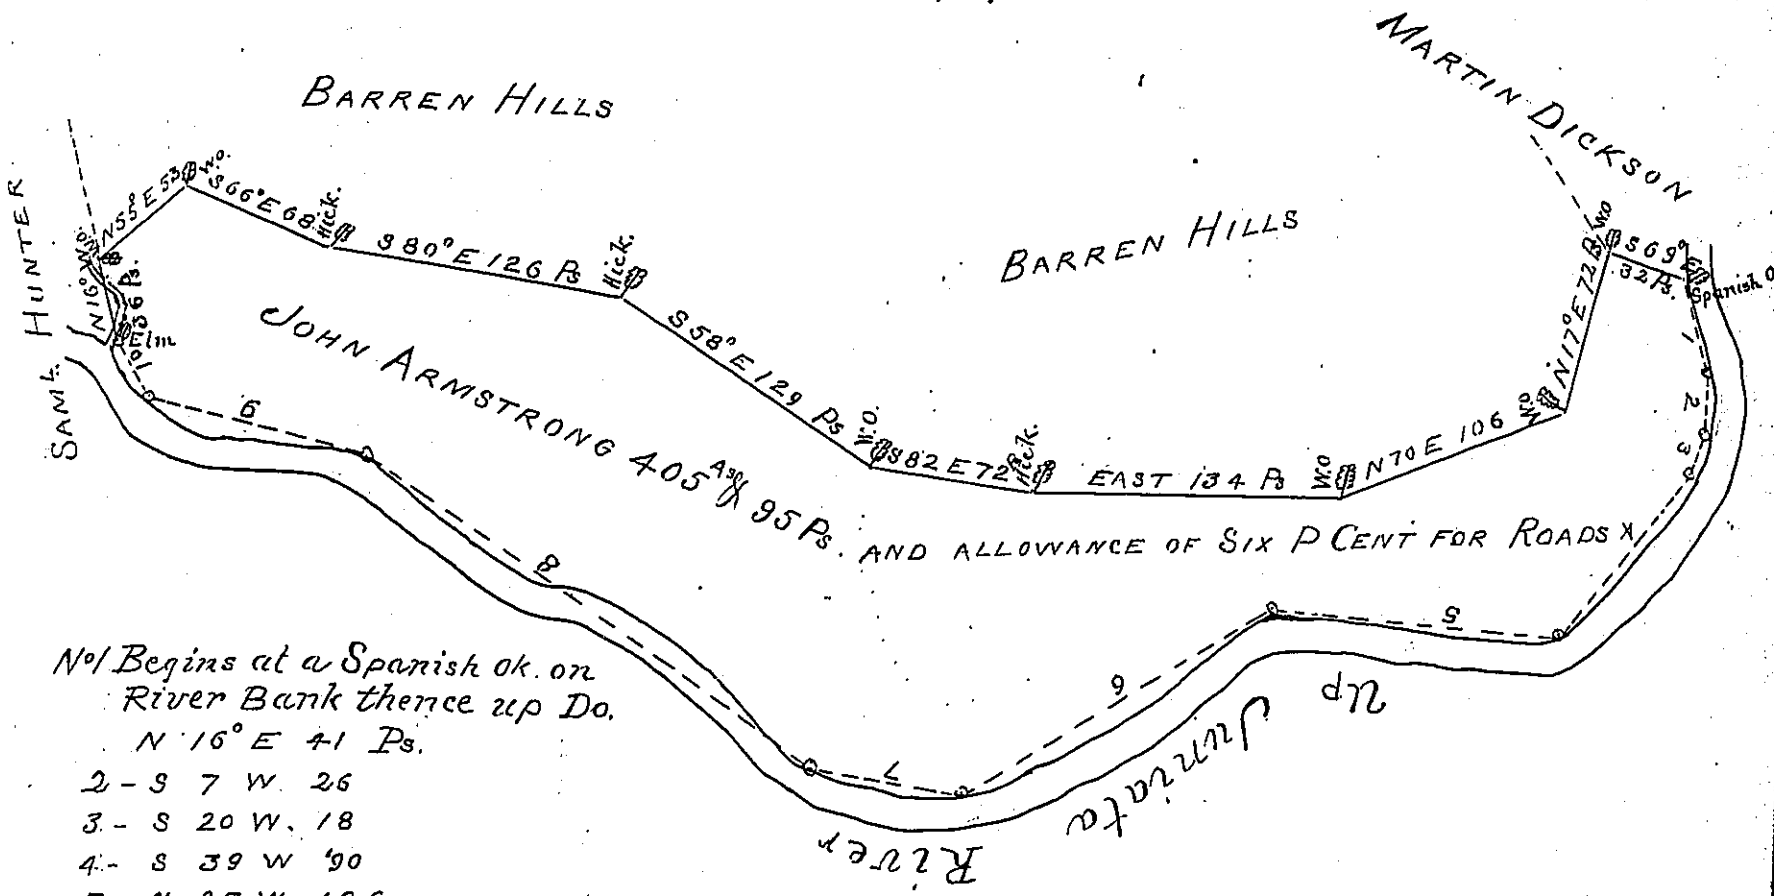 BARREN HILLS
MARTIN DICKSON
SAML. HUNTER
N 16° W 36 Ps.
W.O.
Elm
N 55° E 53
W.O.
S 66° E 68
Hick.
S 80° E 126 Ps
Hick.
S 58° E 129 Ps
W.O.
S 82 E 72
Hick.
EAST 134 Ps
W.O
N 70 E 106
W.O.
N 17° E 72 Ps
W.O
S 69° E
32 Ps.
Spanish O
BARREN HILLS
JOHN ARMSTRONG 405 As & 95 Ps. AND ALLOWANCE OF SIX P CENT FOR ROADS X
1
2
3
5
6
7
8
9
10
Up Juniata River
No 1 Begins at a Spanish Ok. on
River Bank thence up Do.
N 16° E 41 Ps.
2 - S 7 W. 26
3. - S 20 W. 18
4. - S 39 W 90